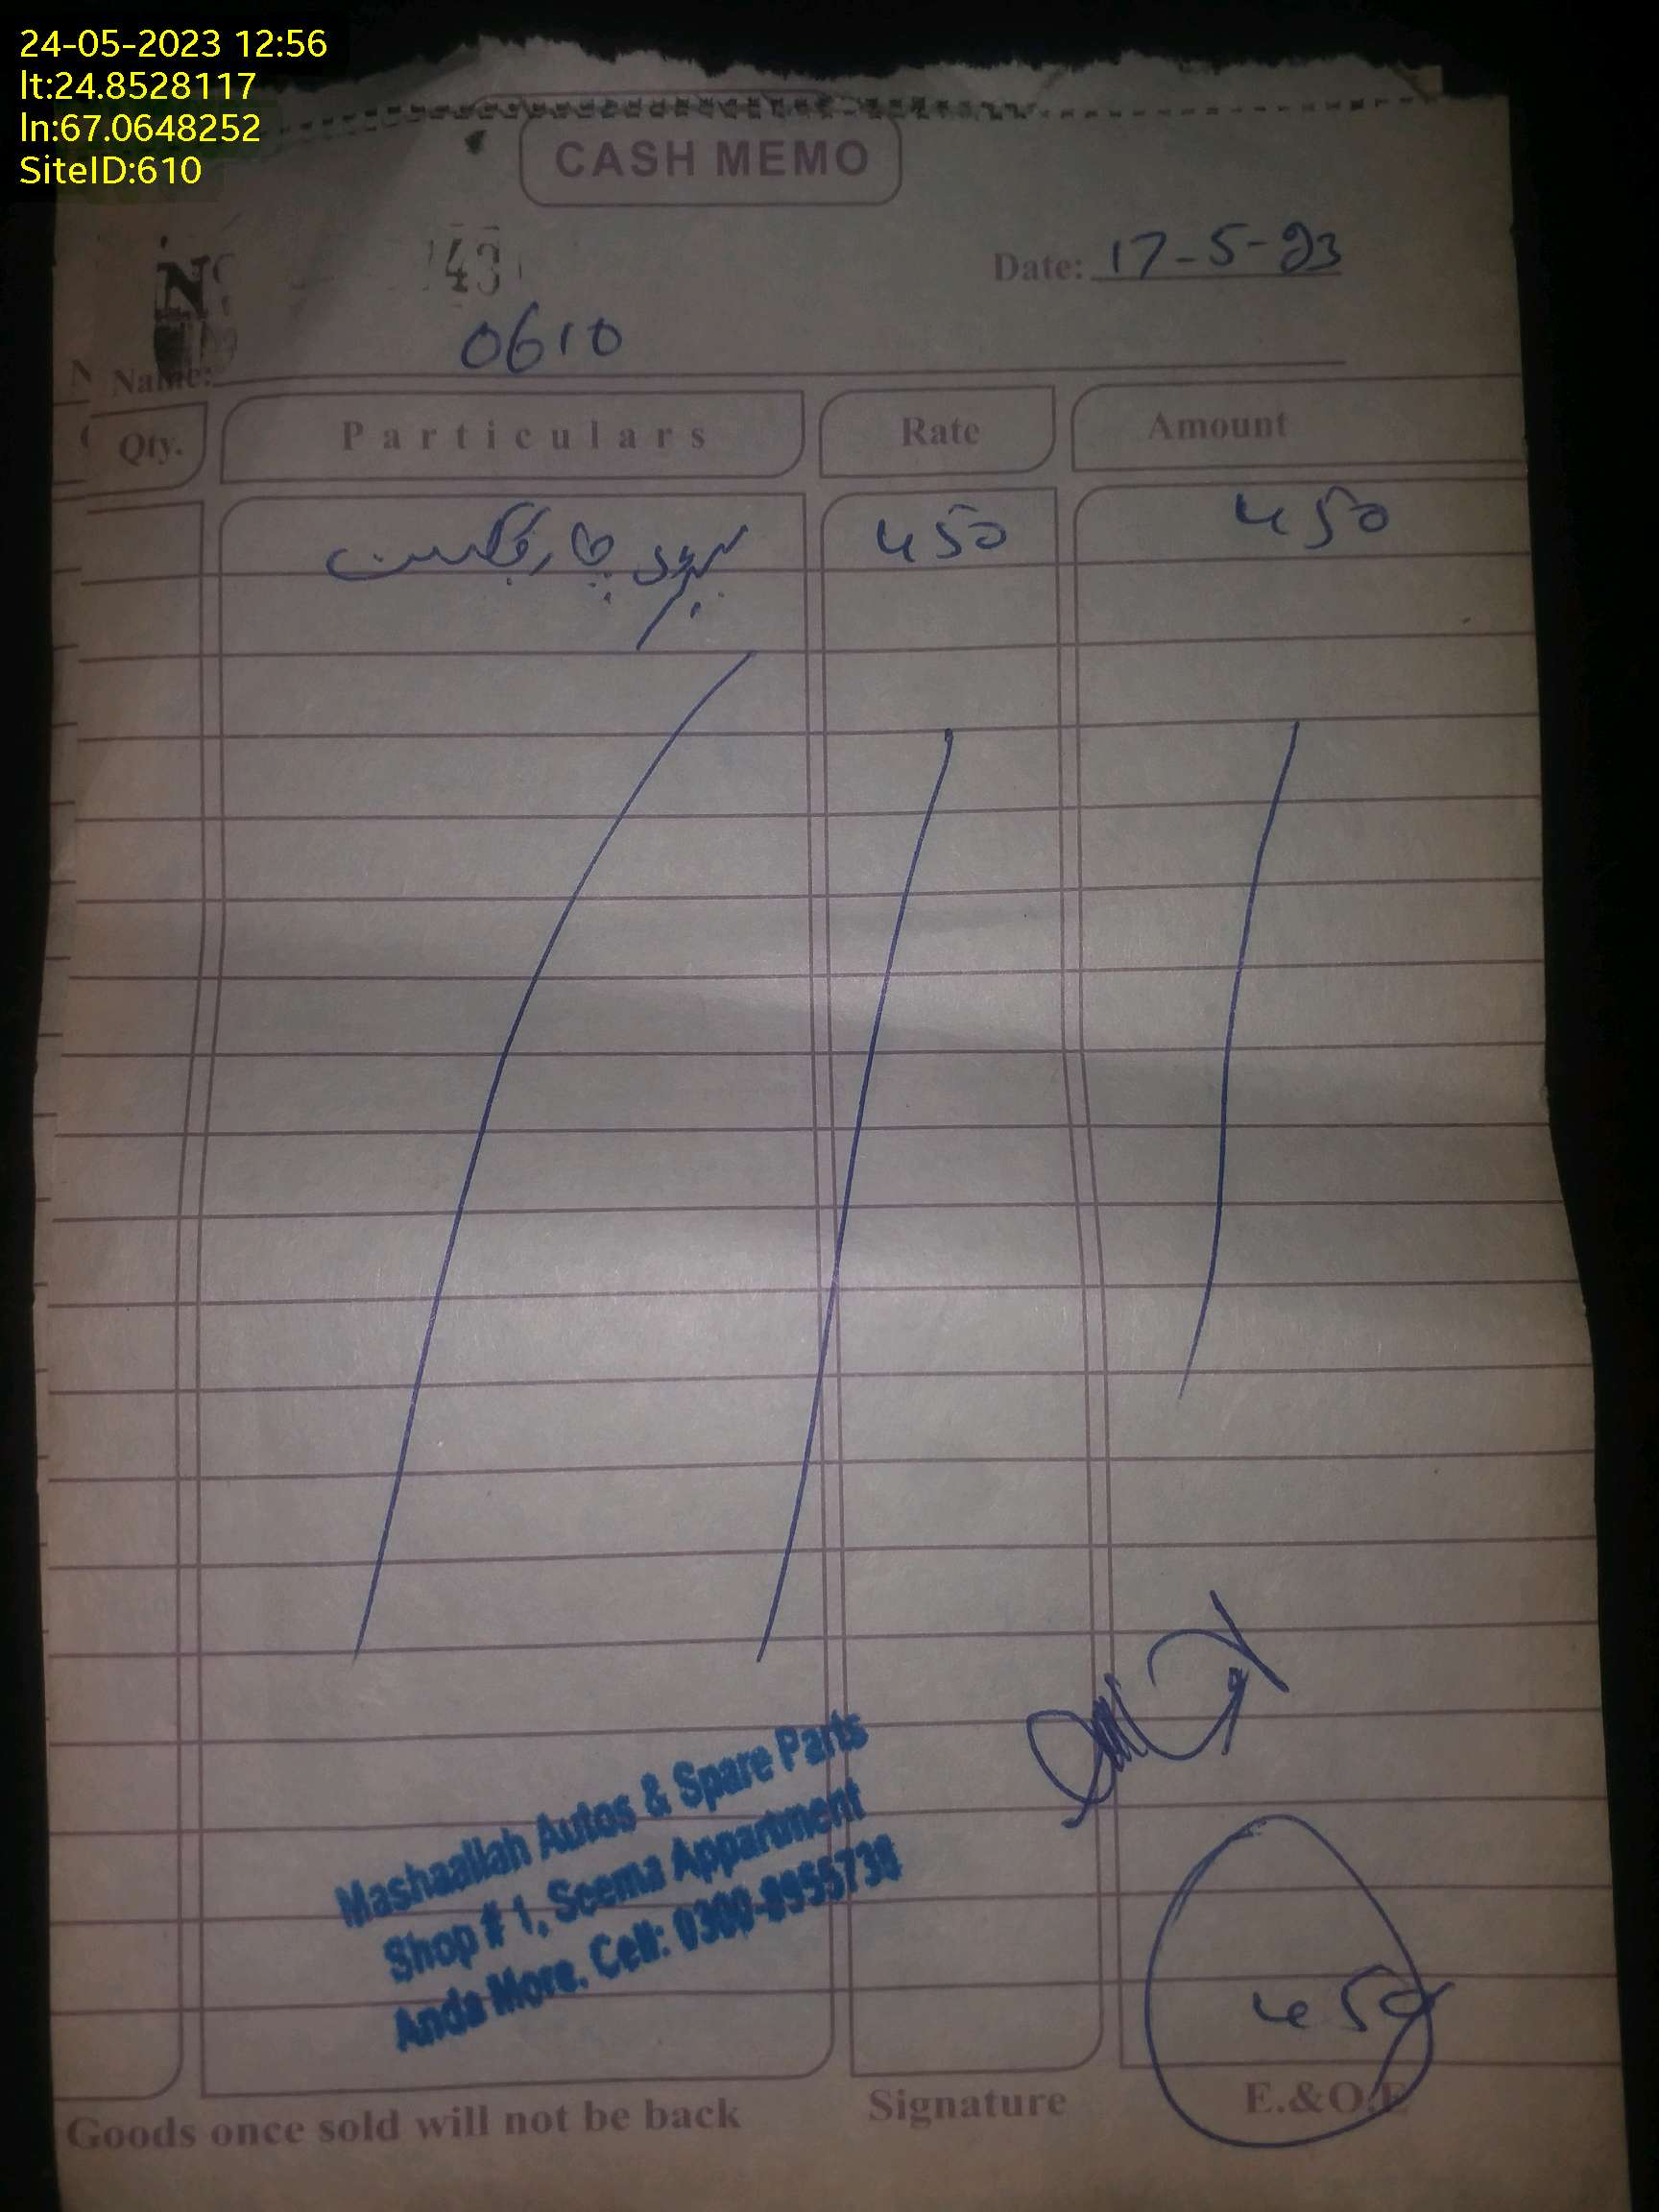 24-05-2023 12:56
lt:24.8528117
ln:67.0648252
SiteID:610
CASH MEMO
43
Date: 17-5-23
0610
Name:
Qty. Particulars Rate Amount
450 450
Mashaallah Autos & Spare Parts
Shop # 1, Seema Appartment
Anda More. Cell: 0300-8955738
450
Goods once sold will not be back Signature E.&O.E